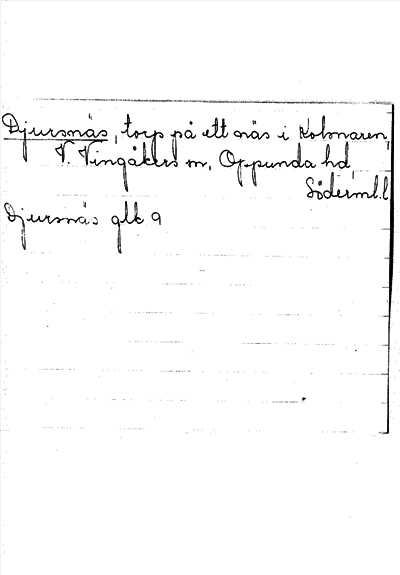 Djursnäs, torp på ett näs i Kolsnaren,
V. Vingåkers sn, Oppunda hd
Söderml.l
Djursnäs glt 9